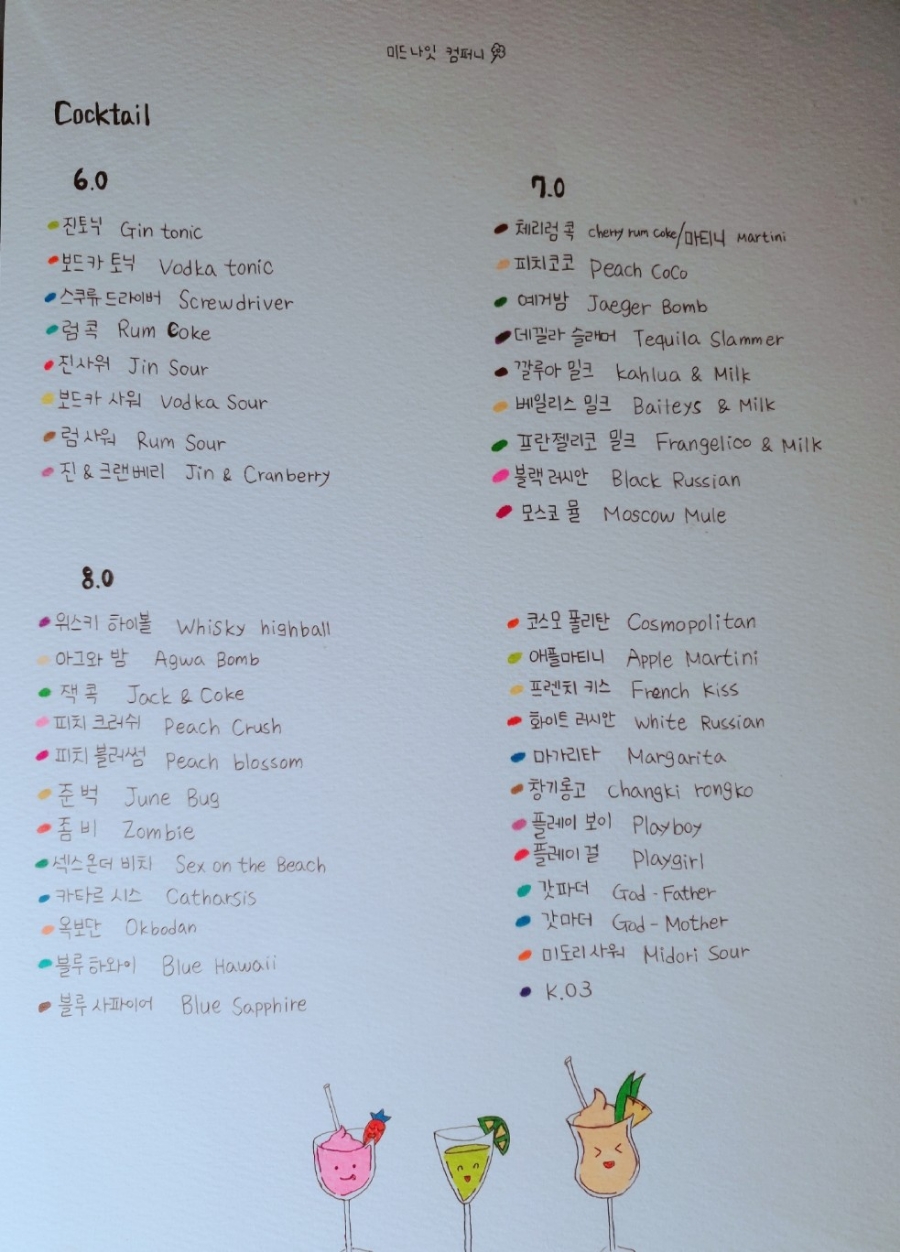 미드나잇 컴퍼니
Cocktail
6.0
진토닉 Gin tonic
보드카 토닉 Vodka tonic
스쿠류 드라이버 Screwdriver
럼 콕 Rum Coke
진사워 Jin Sour
보드카 사워 Vodka Sour
럼사워 Rum Sour
진 & 크랜베리 Jin & Cranberry
7.0
체리럼 콕 cherry rum coke/마티니 Martini
피치코코 Peach CoCo
예거밤 Jaeger Bomb
데낄라 슬래머 Tequila Slammer
깔루아 밀크 Kahlua & Milk
베일리스 밀크 Baileys & Milk
프란젤리코 밀크 Frangelico & Milk
블랙 러시안 Black Russian
모스코 뮬 Moscow Mule
8.0
위스키 하이볼 Whisky highball
아그와 밤 Agwa Bomb
잭 콕 Jack & Coke
피치 크러쉬 Peach Crush
피치 블러썸 Peach blossom
준 벅 June Bug
좀 비 Zombie
섹스온더 비치 Sex on the Beach
카타르 시스 Catharsis
옥보단 Okbodan
블루 하와이 Blue Hawaii
블루 사파이어 Blue Sapphire
코스모 폴리탄 Cosmopolitan
애플마티니 Apple Martini
프렌치 키스 French Kiss
화이트 러시안 White Russian
마가리타 Margarita
창기롱고 Changki rongko
플레이 보이 Playboy
플레이 걸 Playgirl
갓파더 God-Father
갓마더 God-Mother
미도리 사워 Midori Sour
K.03